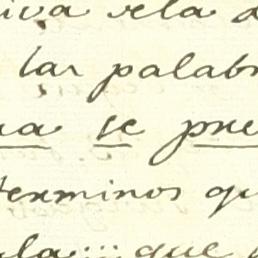 iva sela a
las palabr
na se pue
terminos qu
ula... que